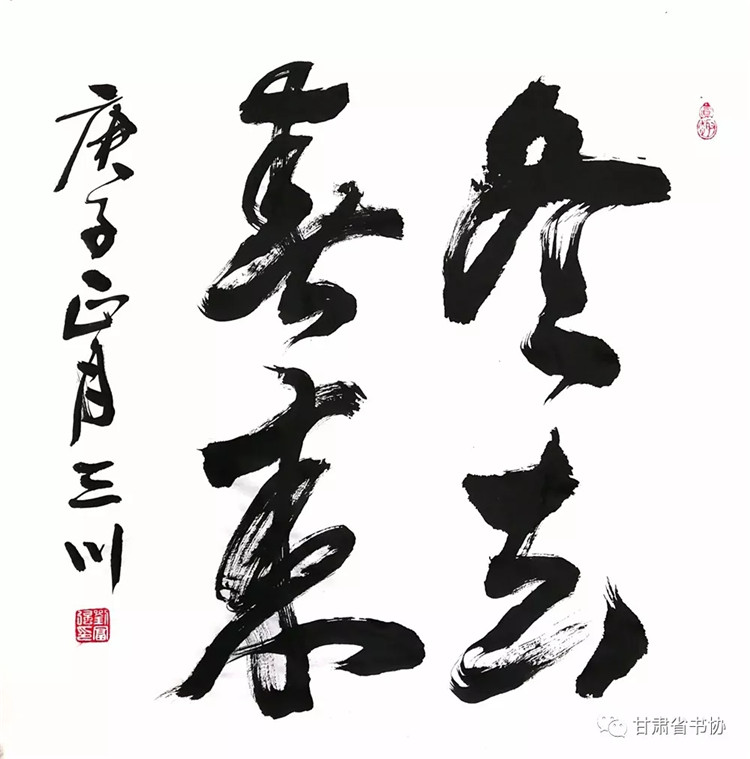 冬去
春来
庚子正月三川
甘肃省书协